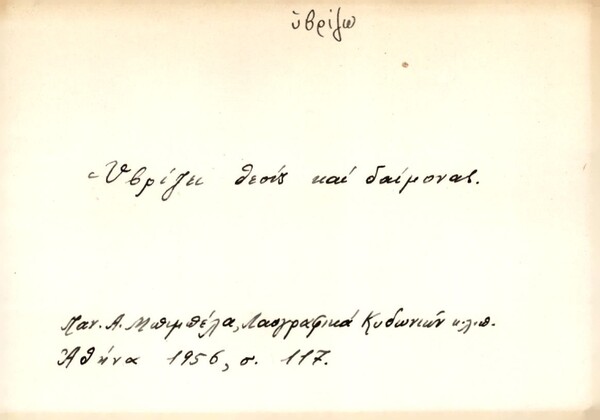 ὑβρίζω
Ὑβρίζει θεούς καί δαίμονας.
Παν. Α. Μπιμπέλα, Λαογραφικά Κυδωνιῶν κ.λ.π.
Ἀθήνα 1956, σ. 117.